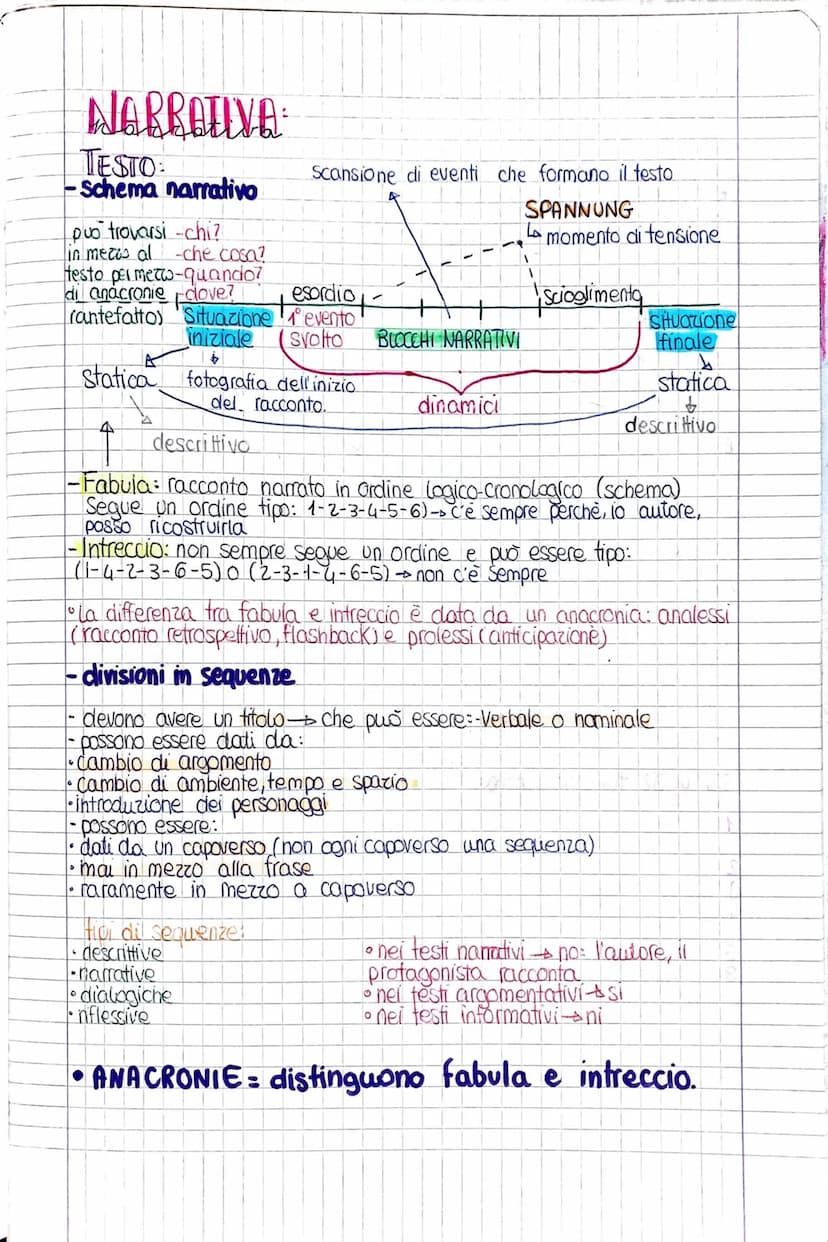 NARRATIVA:
narrativa
TESTO:
- schema narrativo
scansione di eventi che formano il testo
SPANNUNG
↳ momento di tensione
può trovarsi
in mezzo al
testo per mezzo
di anacronie
(antefatto)
-chi?
-che cosa?
-quando?
-dove?
esordio
scioglimento
Situazione
iniziale
1° evento
svolto
BLOCCHI NARRATIVI
situazione
finale
statica
fotografia dell'inizio
del racconto.
dinamici
statica
descrittivo
descrittivo
- Fabula: racconto narrato in ordine logico-cronologico (schema)
Segue un ordine tipo: 1-2-3-4-5-6) → c'è sempre perchè, io autore,
posso ricostruirla
- Intreccio: non sempre segue un ordine e può essere tipo:
(1-4-2-3-6-5) O (2-3-1-4-6-5) → non c'è sempre
• La differenza tra fabula e intreccio è data da un anacronia: analessi
(racconto retrospettivo, flashback) e prolessi (anticipazione)
- divisioni in sequenze
- devono avere un titolo → che può essere:-Verbale o nominale
- possono essere dati da:
• cambio di argomento
• cambio di ambiente, tempo e spazio
• introduzione dei personaggi
- possono essere:
• dati da un capoverso (non ogni capoverso una sequenza)
• mai in mezzo alla frase
• raramente in mezzo a capoverso
tipi di sequenze:
• descrittive
• narrative
• dialogiche
• riflessive
• nei testi narrativi → no: l'autore, il
protagonista racconta
• nei testi argomentativi → si
• nei testi informativi → ni
• ANACRONIE = distinguono fabula e intreccio.